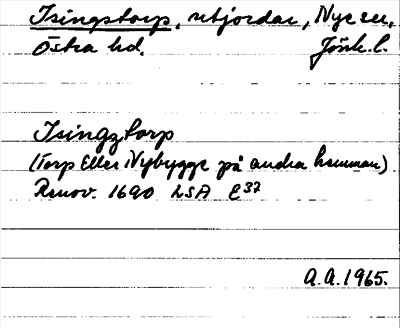 Isingstorp, utjordar, Nye sn,
Östra hd. Jönk. l.
Isingztorp
(Torp Eller Nybygge på andra hemman)
Renov. 1690 LSA E37
A.A. 1965.